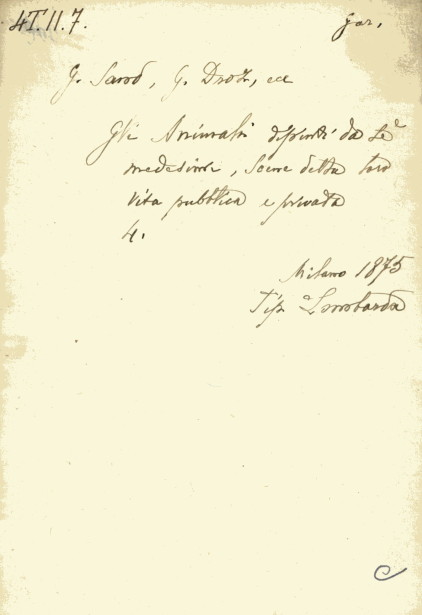 4T.II.7.
Gar.
G. Sand, G. Droz, ecc
Gli Animali dipinti da se
medesimi, Scene della loro
vita pubblica e privata
4.
Milano 1875
Tip Lombarda